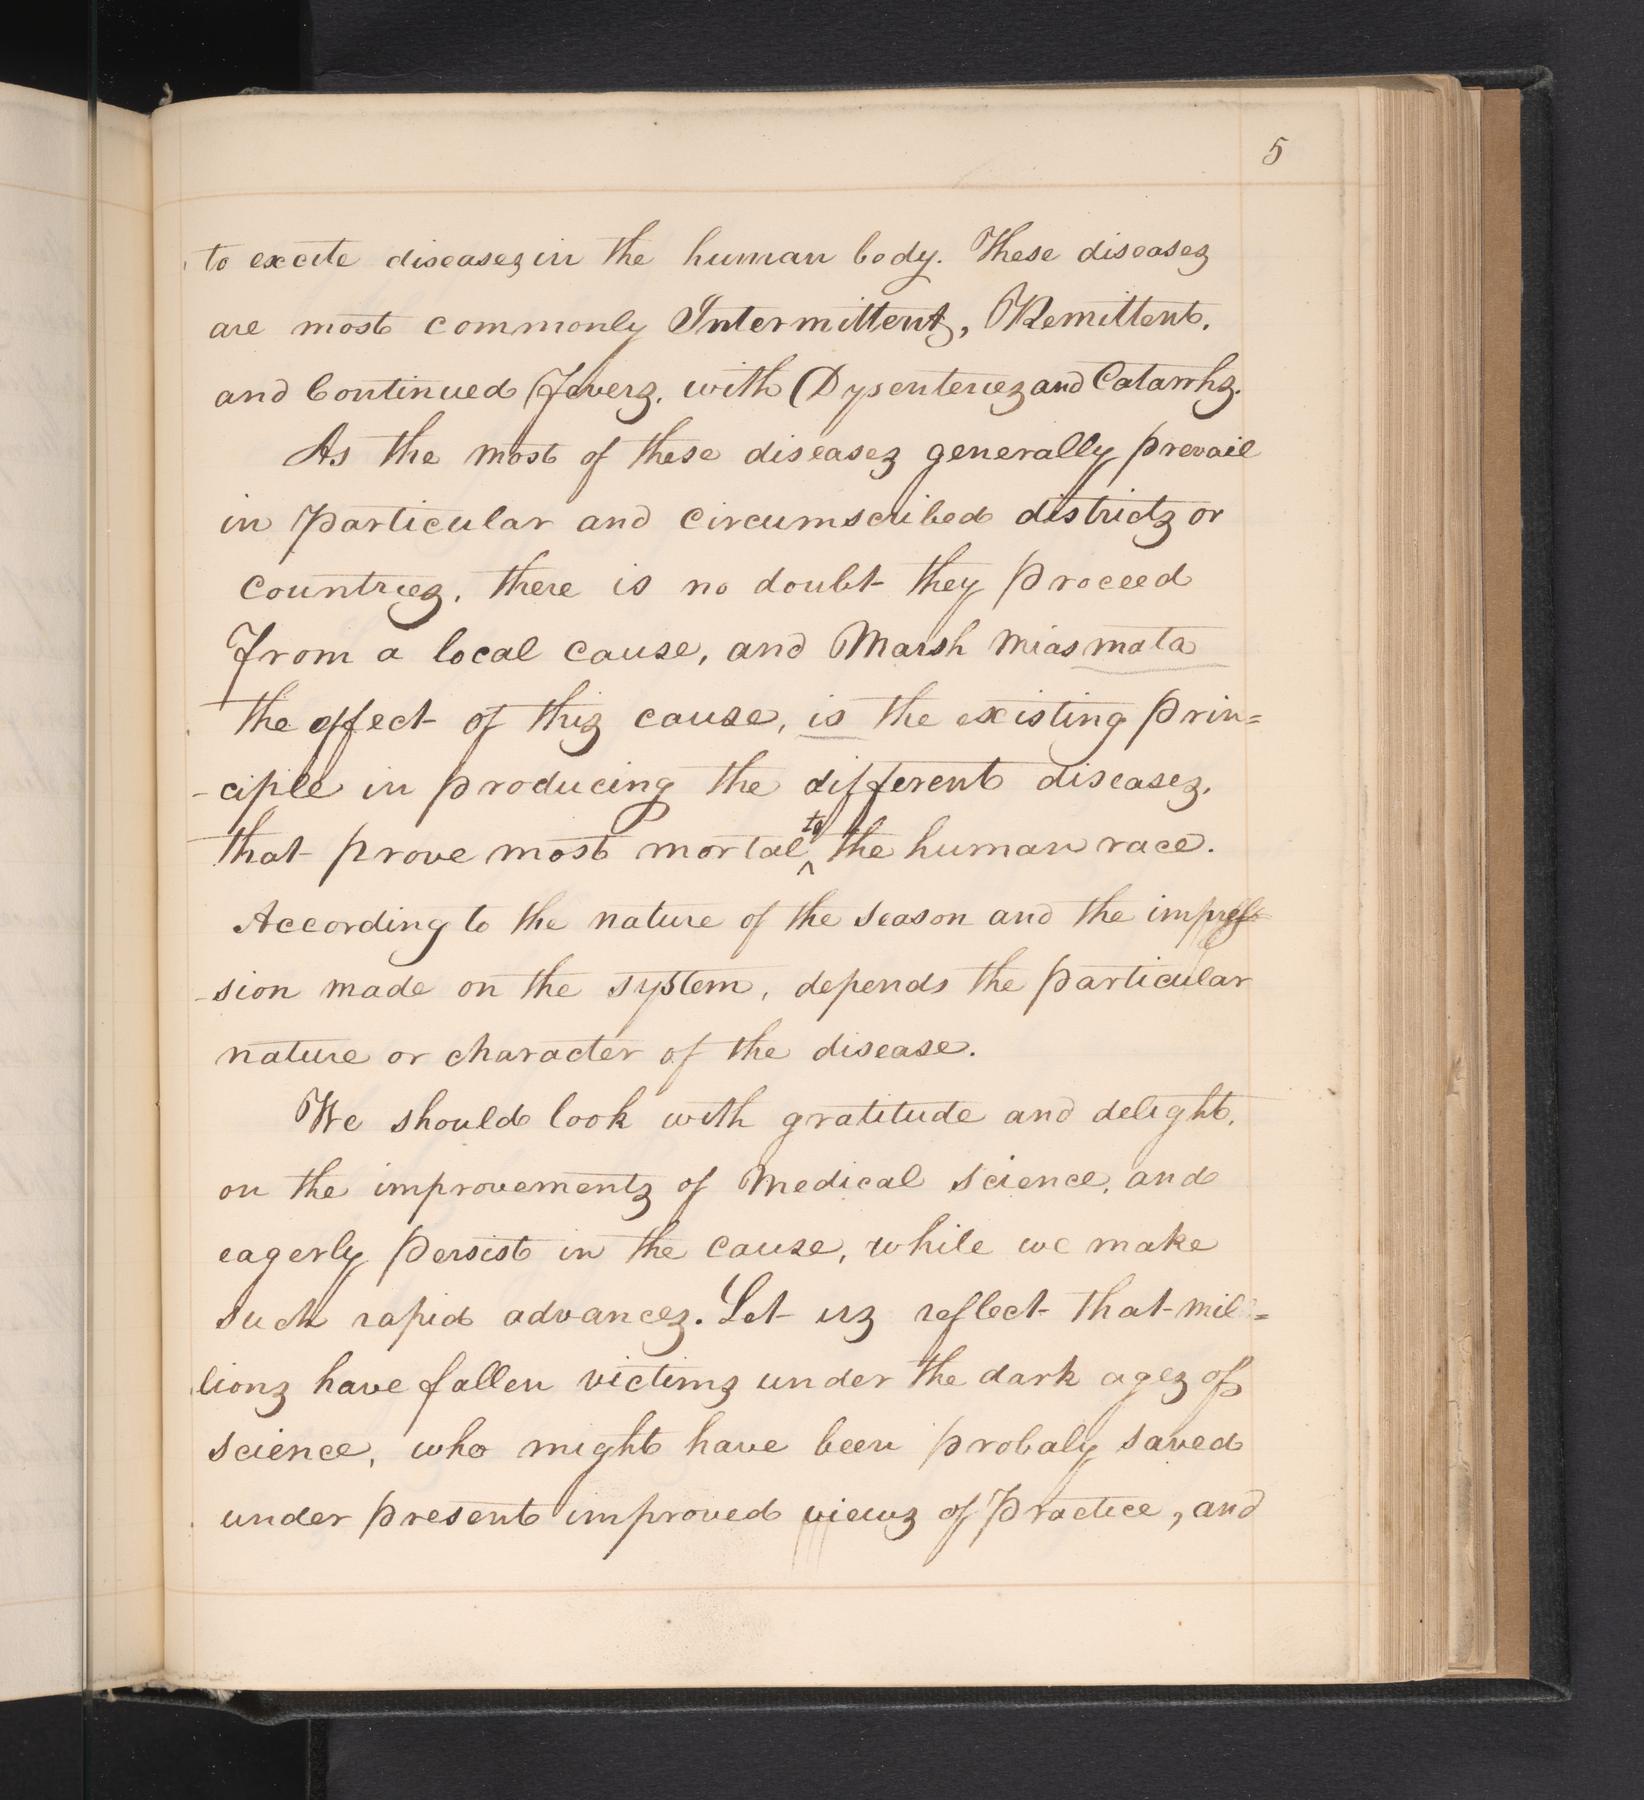 5
to excite diseases in the human body. These diseases
are most commonly Intermittent, Remittent,
and Continued Fevers, with Dysenteries and Catarrhs.
As the most of these diseases generally prevail
in particular and circumscribed districts or
countries, there is no doubt they proceed
From a local cause, and Marsh Miasmata
the effect of this cause, is the existing prin=
-ciple in producing the different diseases,
that prove most mortal to the human race.
According to the nature of the season and the impres=
-sion made on the system, depends the particular
nature or character of the disease.
We should look with gratitude and delight,
on the improvements of Medical science, and
eagerly persist in the cause, while we make
such rapid advances. Let us reflect that mil=
lions have fallen victims under the dark ages of
science, who might have been probaly saved
under present improved views of Practice, and